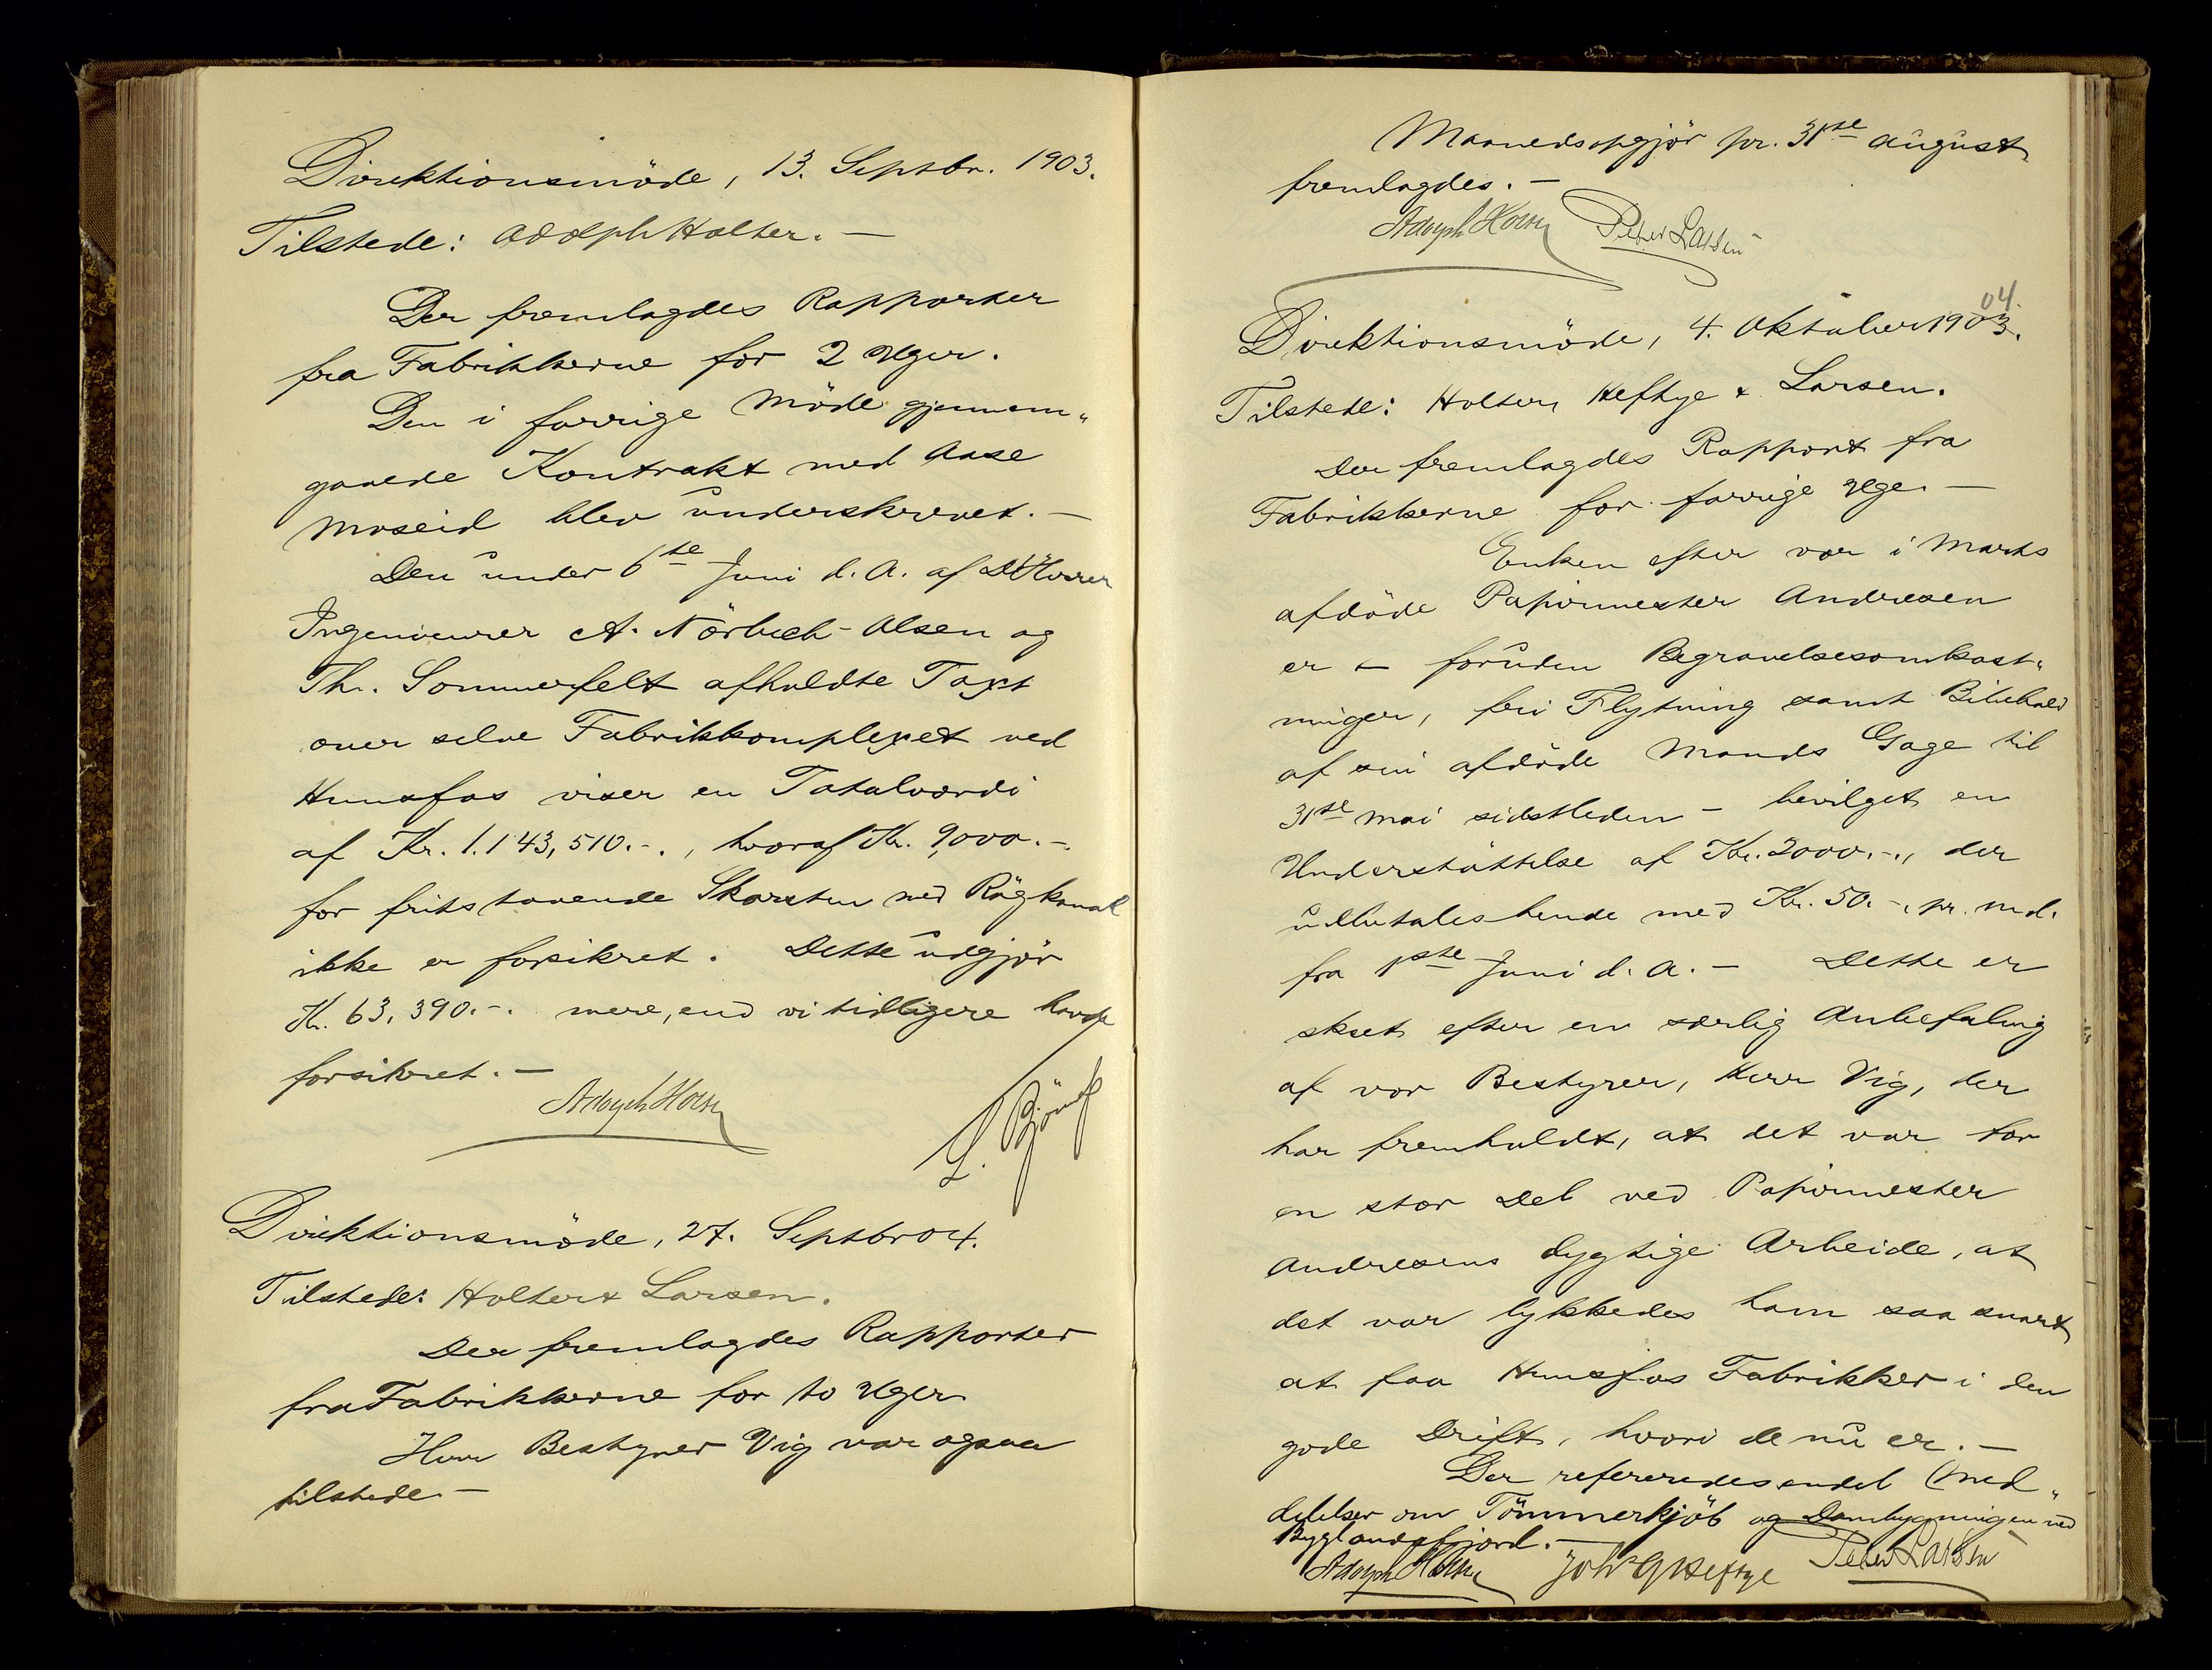 Direktionsmöde, 13. Septbr. 1903.
Tilstede: Adolph Holter. —
Der fremlagdes Rapporter
fra Fabrikkerne for 2 Uger.
Den i forrige Möde gjennem„
gaaede Kontrakt med Aase
Moseid blev underskrevet. —
Den under 6te Juni d. A. af DHerrer
Ingenieurer A. Nörbech-Olsen og
Th. Sommerfelt afholdte Taxt
over selve Fabrikkomplexet ved
Hunsfos viser en Totalværdi
af Kr. 1.143,510.-., hvoraf Kr. 9,000.-.
for fritstaaende Skorsten med Rögkanal
ikke er forsikret. Dette udgjör
Kr. 63,390.-. mere, end vi tidligere havde
forsikret. —
Adolph Holter
Direktionsmöde, 27. Septbr 04.
Tilstede: Holter & Larsen.
Der fremlagdes Rapporter
fra Fabrikkerne for to Uger
Herr Bestyrer Vig var ogsaa
tilstede —
Maanedsopgjör pr. 31te August
fremlagdes. —
Adolph Holter Peter Larsen
04.
Direktionsmöde, 4. Oktober 1903.
Tilstede: Holter, Heftye & Larsen.
Der fremlagdes Rapport fra
Fabrikkerne for forrige Uge. —
Enken efter vor i Marts
afdöde Papirmester Andresen
er — foruden Begravelsesomkost„
ninger, fri Flytning samt Bibehold
af sin afdöde Mands Gage til
31te Mai sidstleden — bevilget en
Understöttelse af Kr. 2000.-., der
udbetales hende med Kr. 50.-. pr. md.
fra 1ste Juni d. A. — Dette er
skeet efter en særlig Anbefaling
af vor Bestyrer, Herr Vig, der
har fremholdt, at det var for
en stor Del ved Papirmester
Andresens dygtige Arbeide, at
det var lykkedes ham saa snart
at faa Hunsfos Fabrikker i den
gode Drift, hvori de nu er. —
Der refereredes endel Med„
delelser om Tömmerkjöb og Dambygningen ved
Byglandsfjord. —
Adolph Holter Joh G Heftye Peter Larsen